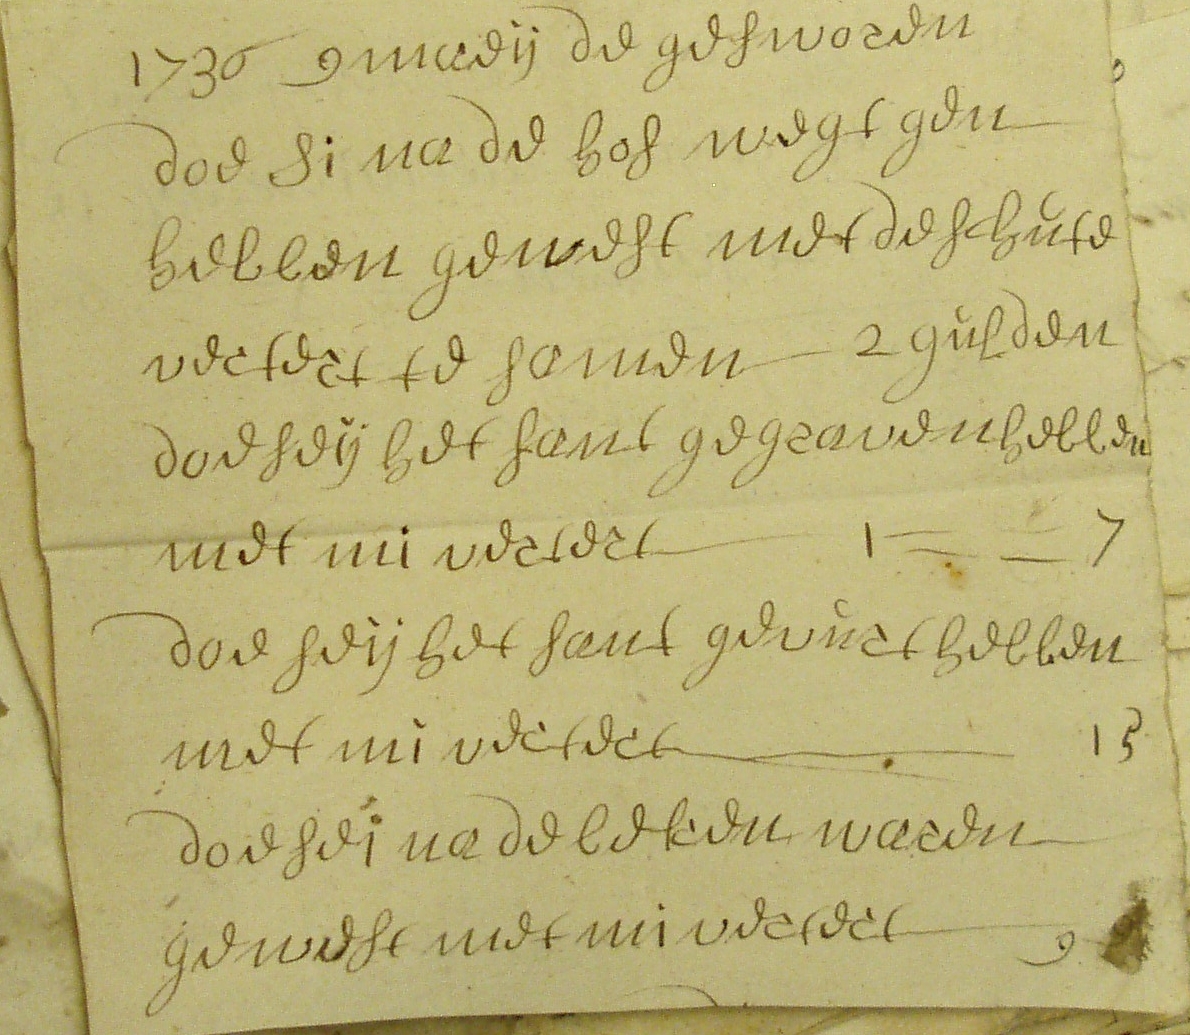 1736 9 maeij de gesworen
doe si na de hof wegt gen
hebben gewest met de schute
vertert te samen 2 gulden
doe seij het sant gegraven hebben
met mi vertert 1 = = 7
doe seij het sant gevürt hebben
met mi vertert 15
doe sei na de beken waren
gewest met mi vertert 9